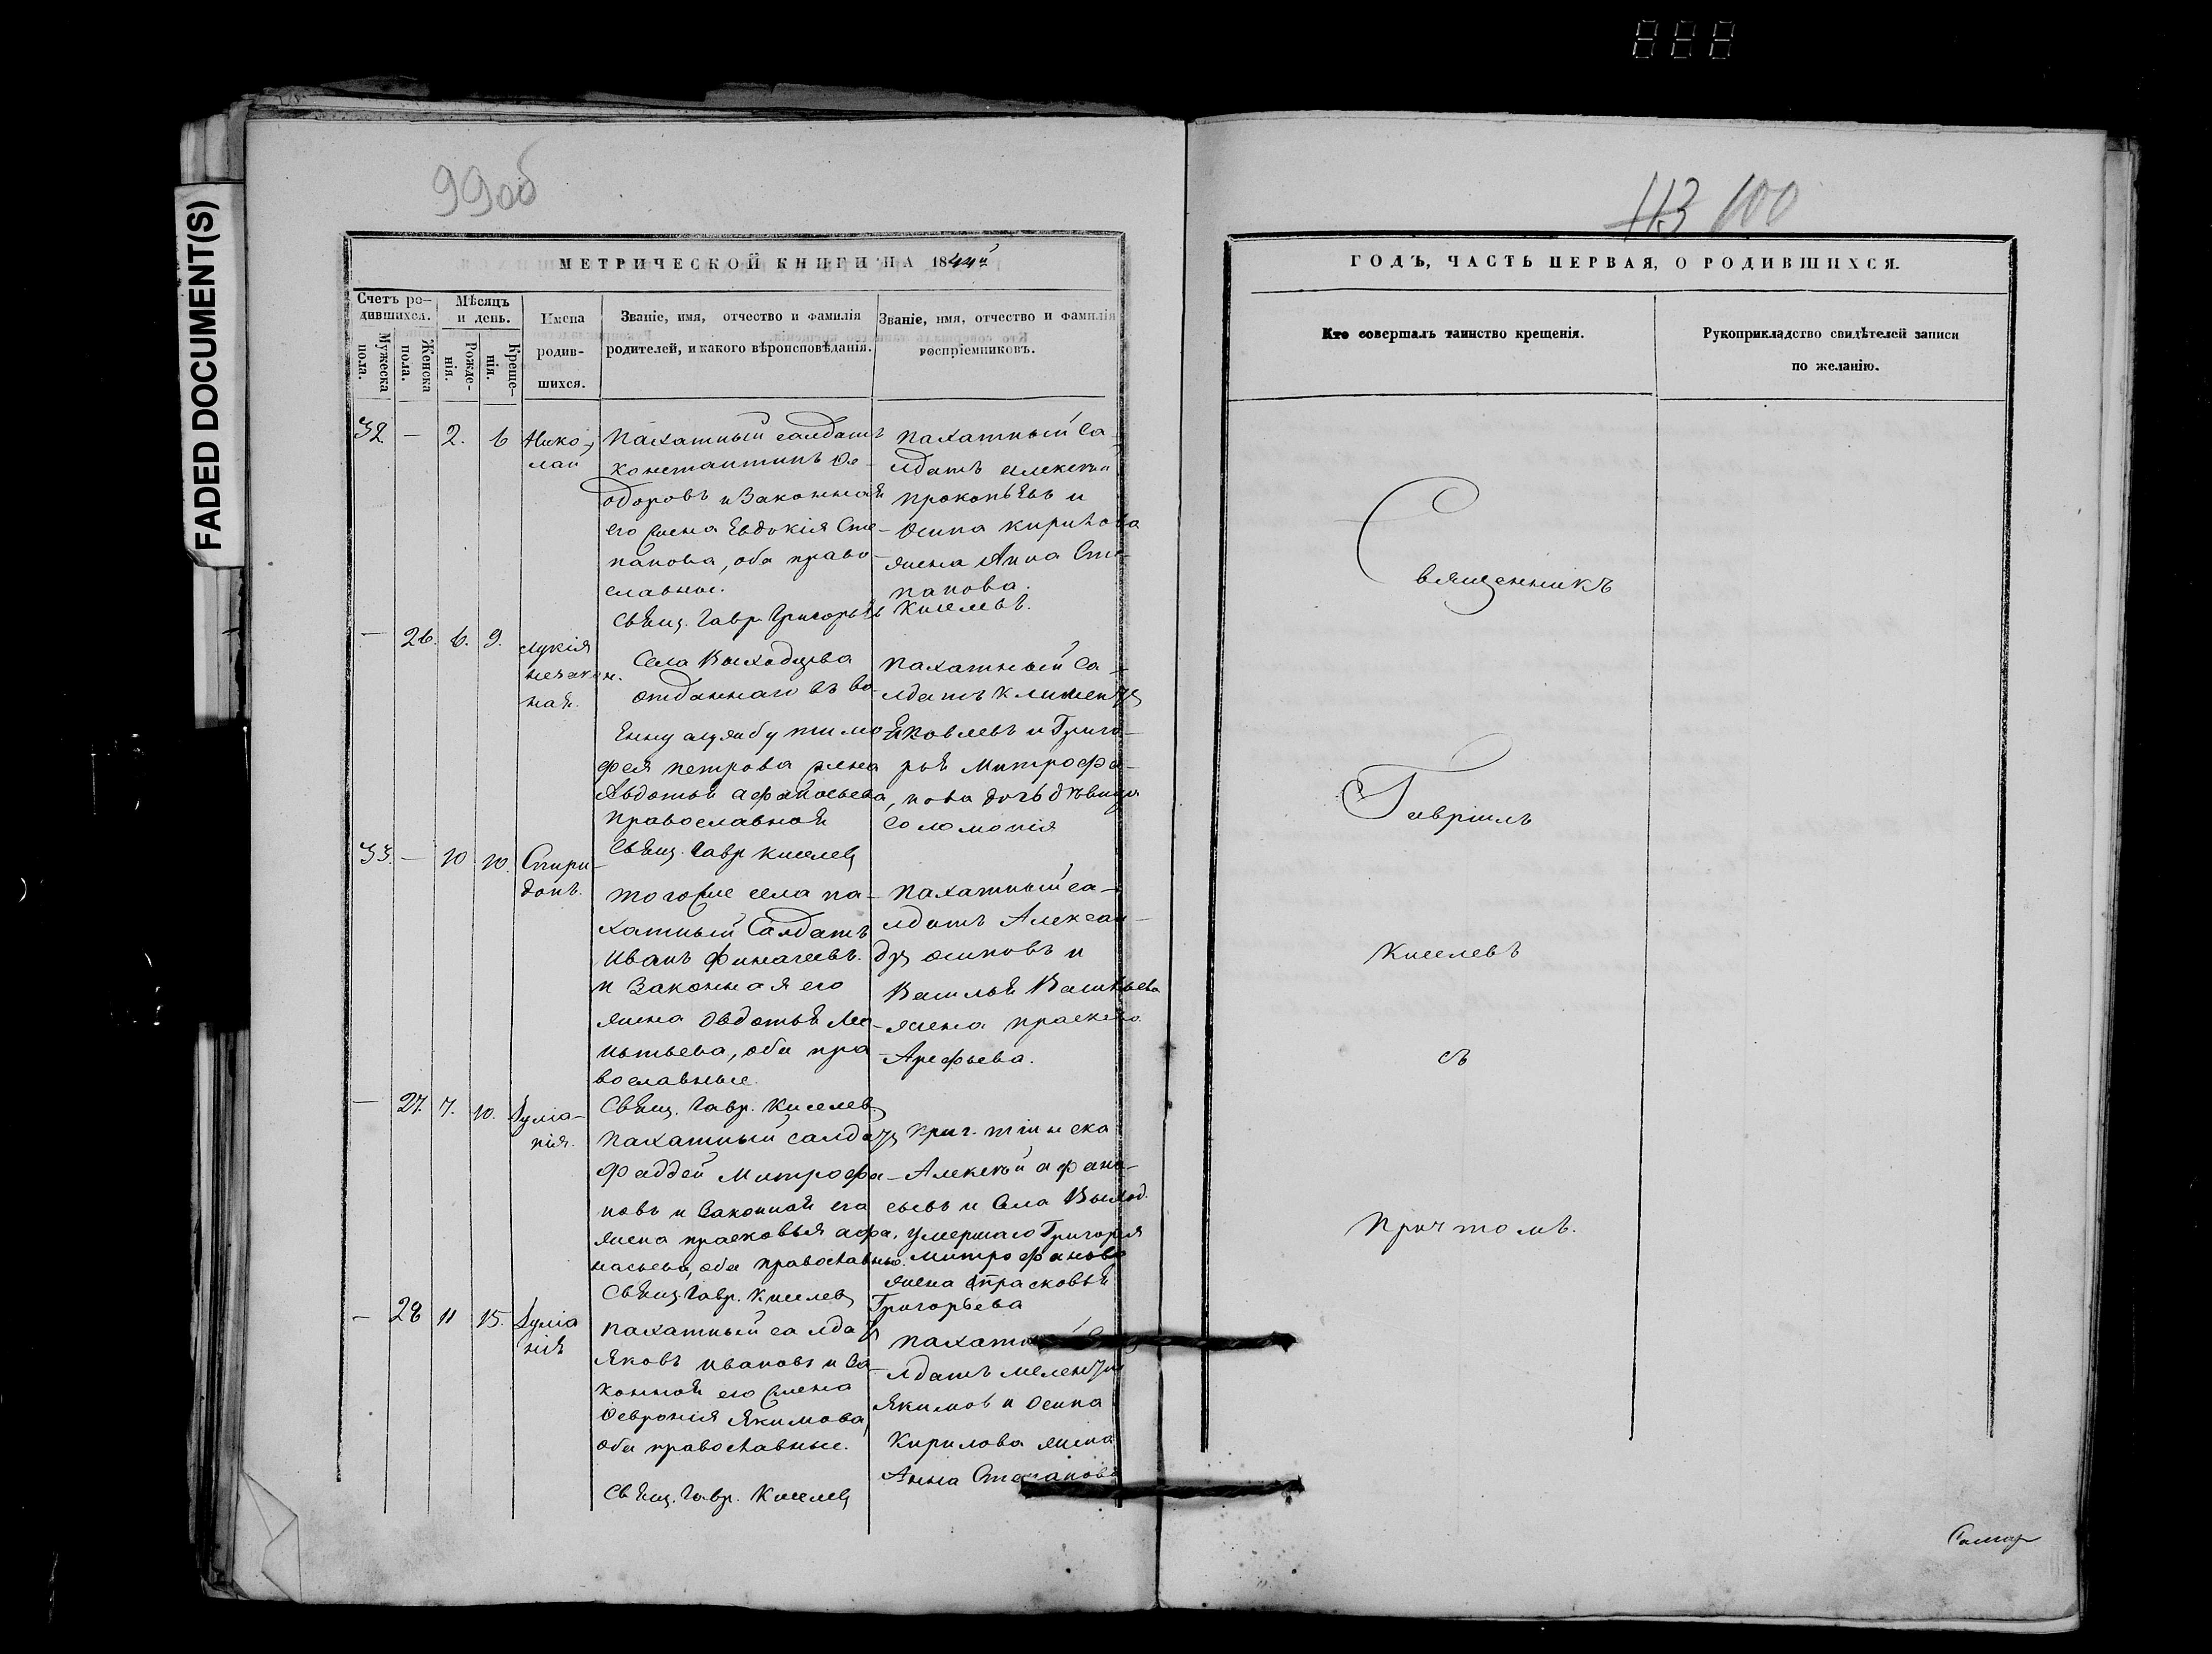 FADED DOCUMENT(S)
99об
МЕТРИЧЕСКОЙ КНИГИ НА 1844й
Счетъ ро-
дившихся.
Мужеска пола.
Женска пола.
Мѣсяцъ
и день.
Рожде-
нія.
Креще-
нія.
Имена
родив-
шихся.
Званіе, имя, отчество и фамилія
родителей, и какого вѣроисповѣданія.
Званіе, имя, отчество и фамилія
воспріемниковъ.
32 — 2. 6 Нико-
лай
Пахатный салдатъ
Константинъ Ѳе-
одоровъ и Законная
его жена Евдокія Сте-
панова, оба право-
славные.
Свящ. Гавр. Григорьевъ Киселевъ.
Пахатный Са-
лдатъ Алексѣй
Прокопьевъ и
Осипа Кирилова
жена Анна Сте-
панова.
— 26. 6. 9. Лукія
незакон.
ная.
Села Выходцева
отданнаго въ во-
енну службу тимо-
фея петрова жена
Авдотья афанасьева,
православной
Свящ. Гавр. Киселевъ
Пахатный Са-
лдатъ Климентъ
Яковлевъ и Григо-
рья Митрофа-
нова дочь дѣвица
Соломонія
33. — 10 10. Спири-
донъ.
Тогоже села па-
хатный Салдатъ
Иванъ Финагеевъ.
и Законная его
жена Овдотья Ле-
нтьева, оба пра-
вославные.
Свящ. Гавр. Киселевъ
Пахатный са-
лдатъ Алексан-
дръ Осиповъ и
Василья Васильева
жена праскев.
Арефьева.
— 27. 7. 10. Іуліа-
нія.
Пахатный салдатъ
Фаддей Митрофа-
новъ и Законная его
жена прасковья афа-
насьева, оба православные.
Свящ. Гавр. Киселевъ
Алексѣй афана-
сьевъ и Села Выход.
умершаго Григорья
Митрофанова
жена прасковья
Григорьева
— 28 11 15. Іуліа
нія
Пахатный салдатъ
Яковъ Ивановъ и За-
конная его жена
Ѳевронія Якимова,
оба православные.
Свящ. Гавр. Киселевъ
Пахатн
лдатъ Мелентий
Якимов и Осипа
Кирилова жена
Анна Степанова
113 100
ГОДЪ, ЧАСТЬ ПЕРВАЯ, О РОДИВШИХСЯ.
Кто совершалъ таинство крещенія.
Рукоприкладство свидѣтелей записи
по желанію.
Священникъ
Гавріилъ
Киселевъ
съ
Причтомъ.